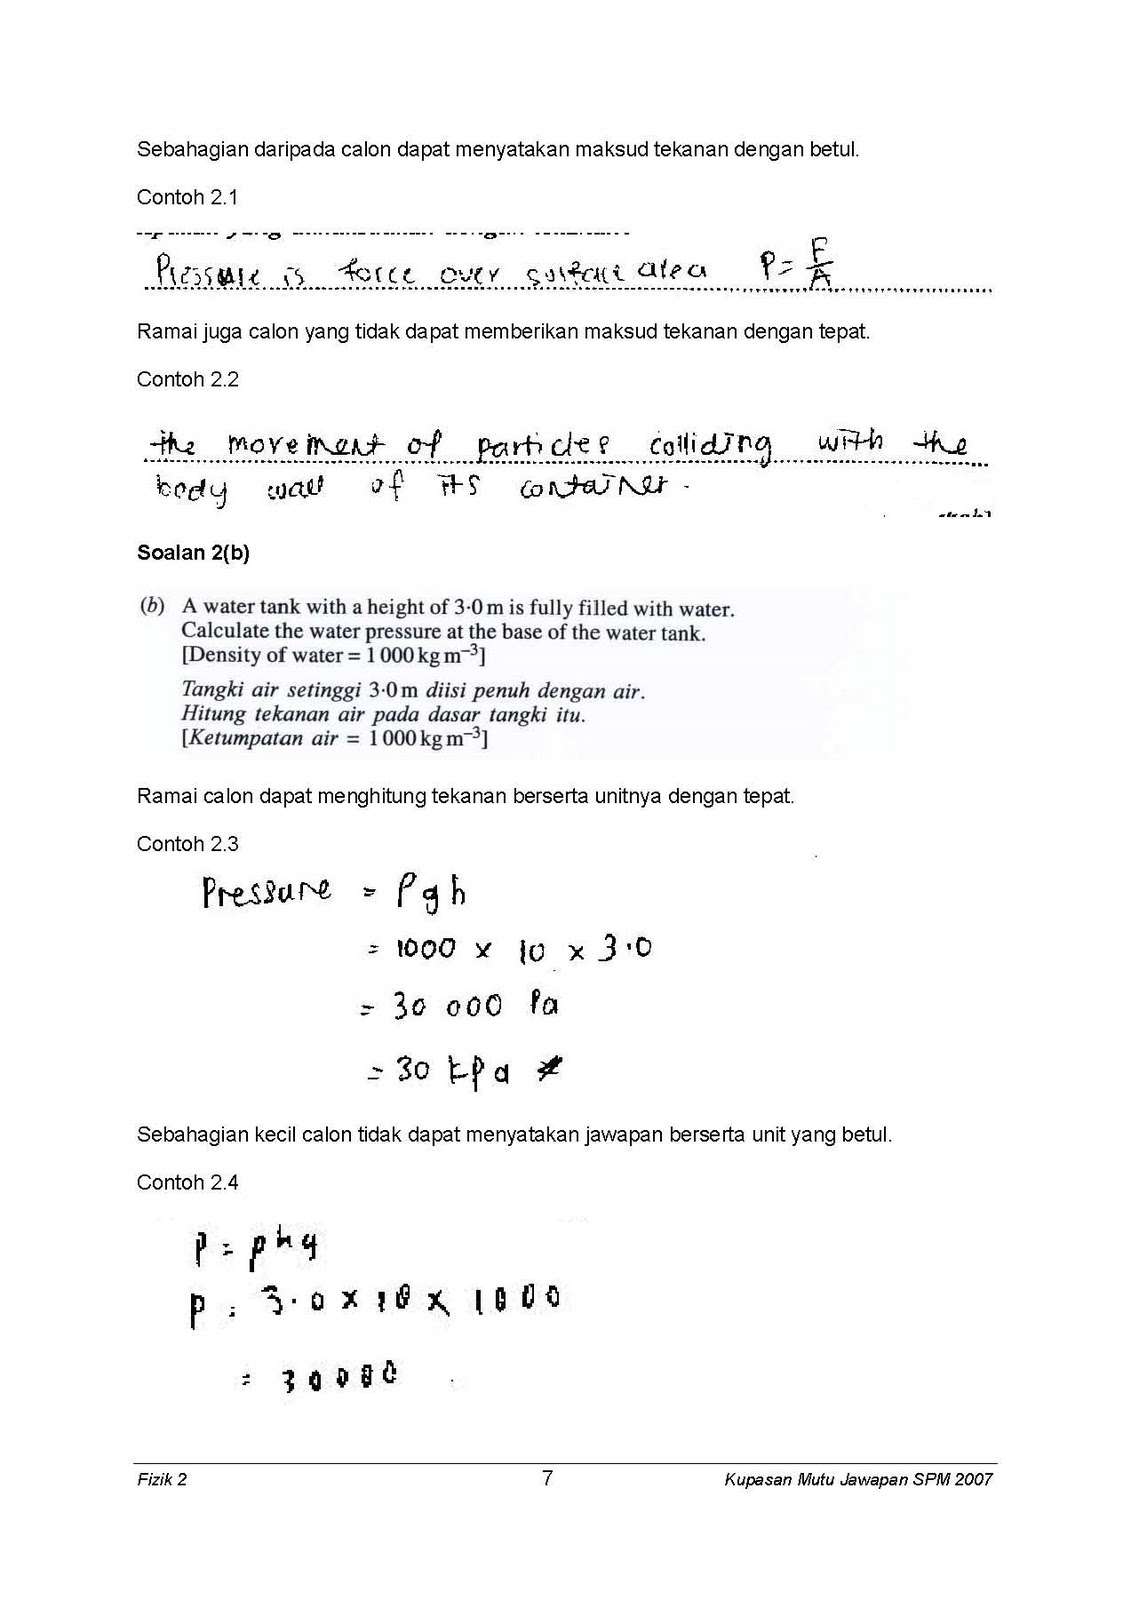 Sebahagian daripada calon dapat menyatakan maksud tekanan dengan betul.
Contoh 2.1
Pressure is force over surface area P = F/A
Ramai juga calon yang tidak dapat memberikan maksud tekanan dengan tepat.
Contoh 2.2
the movement of particles colliding with the
body wall of its container.
Soalan 2(b)
(b) A water tank with a height of 3·0 m is fully filled with water.
Calculate the water pressure at the base of the water tank.
[Density of water = 1 000 kg m⁻³]
Tangki air setinggi 3·0 m diisi penuh dengan air.
Hitung tekanan air pada dasar tangki itu.
[Ketumpatan air = 1 000 kg m⁻³]
Ramai calon dapat menghitung tekanan berserta unitnya dengan tepat.
Contoh 2.3
Pressure = ρgh
= 1000 x 10 x 3·0
= 30 000 Pa
= 30 kPa
Sebahagian kecil calon tidak dapat menyatakan jawapan berserta unit yang betul.
Contoh 2.4
P = ρhg
P = 3·0 x 10 x 1000
= 30000
Fizik 2 7 Kupasan Mutu Jawapan SPM 2007